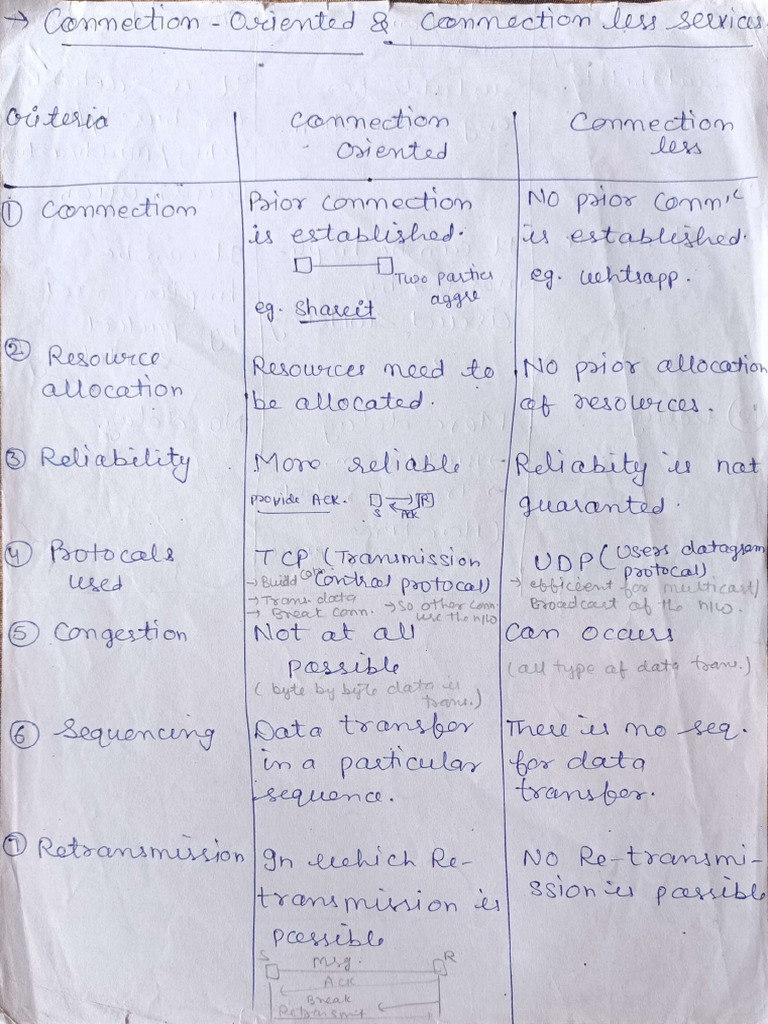 → Connection-Oriented & Connection less services
Criteria
Connection
Oriented
Connection
less
① Connection
Prior connection
is established.
Two parties
aggre
eg. Shareit
No prior Conn,c
is established.
eg. whtsapp.
② Resource
allocation
Resources need to
be allocated.
No prior allocation
of resources.
③ Reliability
More reliable
provide Ack.
S
R
Ack
Reliabity is not
guaranted.
④ Protocals
used
TCP (Transmission
Control protocal)
→ Build Conn
→ Trans. data
→ Break conn.
→ So other conn
use the n/w
UDP (Users datagram
protocal)
→ efficient for multicast/
Broadcast of the n/w.
⑤ Congestion
Not at all
possible
(byte by byte data is
trans.)
Can occurs
(all type of data trans.)
⑥ Sequencing
Data transfer
in a particular
sequence.
There is no seq.
for data
transfer.
⑦ Retransmission
In which Re-
transmission is
possible
S
Msg.
R
Ack
Break
Retransmit
No Re-transmi-
ssion is possible